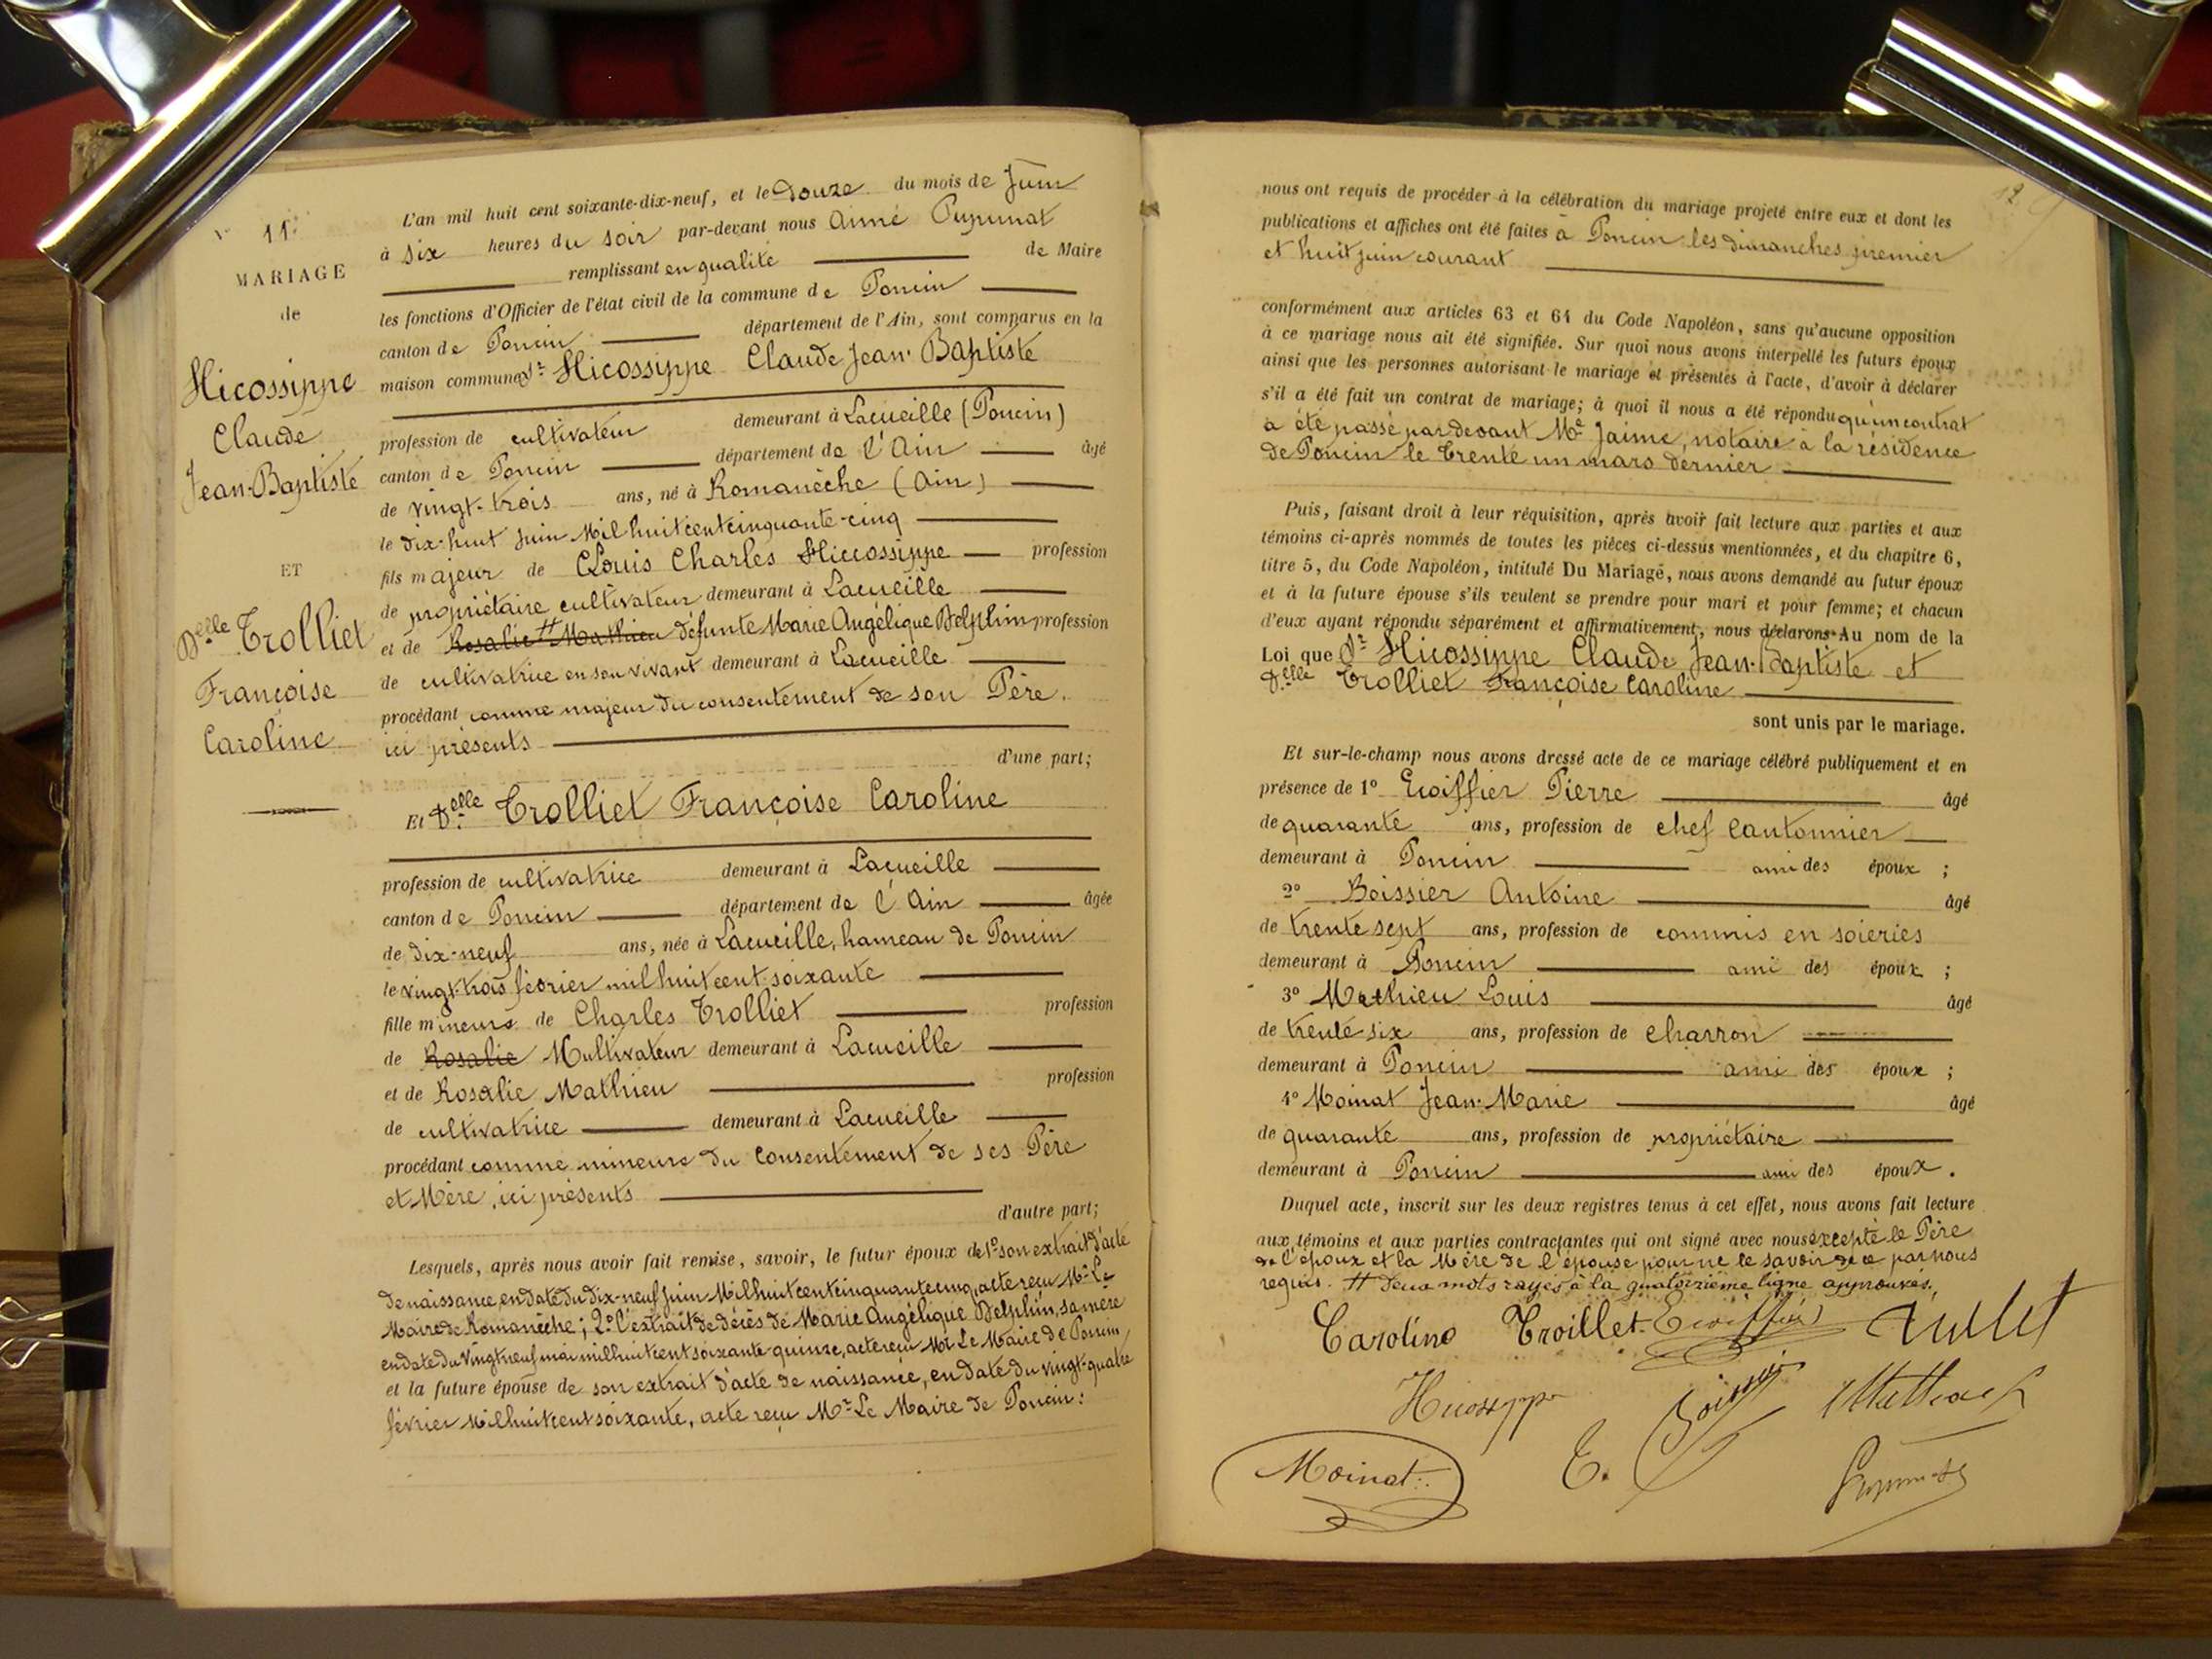 N° 11.
MARIAGE
de
Hicossippe
Claude
Jean-Baptiste
ET
Delle Trolliet
Françoise
Caroline
L'an mil huit cent soixante-dix-neuf, et le Douze du mois de Juin
à six heures du soir par-devant nous Aimé Pupunat
remplissant en qualité de Maire
les fonctions d'Officier de l'état civil de la commune de Poncin
canton de Poncin département de l'Ain, sont comparus en la
maison commune Sr Hicossippe Claude Jean-Baptiste
profession de cultivateur demeurant à Lacueille (Poncin)
canton de Poncin département de l'Ain âgé
de vingt-trois ans, né à Romanèche (Ain)
le dix-huit Juin Mil huit cent cinquante-cinq
fils majeur de Louis Charles Hicossippe profession
de propriétaire cultivateur demeurant à Lacueille
et de Rosalie # Mathieu défunte Marie Angélique Delphin profession
de cultivatrice en son vivant demeurant à Lacueille
procédant comme majeur du consentement de son Père.
ici présents
d'une part;
Et Delle Trolliet Françoise Caroline
profession de cultivatrice demeurant à Lacueille
canton de Poncin département de l'Ain âgée
de dix-neuf ans, née à Lacueille, hameau de Poncin
le vingt-trois février mil huit cent soixante
fille mineure de Charles Trolliet profession
de Rosalie Multivateur demeurant à Lacueille
et de Rosalie Mathieu profession
de cultivatrice demeurant à Lacueille
procédant comme mineure du consentement de ses Père
et Mère, ici présents
d'autre part;
Lesquels, après nous avoir fait remise, savoir, le futur époux de 1° son extrait d'acte
de naissance, en date du dix-neuf juin Mil huit cent cinquante cinq, acte reçu Mr Le
Maire de Romanèche; 2° l'extrait de décès de Marie Angélique Delphin, sa mère
en date du vingt neuf mai mil huit cent soixante-quinze, acte reçu Mr Le Maire de Poncin,
et la future épouse de son extrait d'acte de naissance, en date du vingt-quatre
février Mil huit cent soixante, acte reçu Mr Le Maire de Poncin:
12
nous ont requis de procéder à la célébration du mariage projeté entre eux et dont les
publications et affiches ont été faites à Poncin les dimanches premier
et huit juin courant
conformément aux articles 63 et 64 du Code Napoléon, sans qu'aucune opposition
à ce mariage nous ait été signifiée. Sur quoi nous avons interpellé les futurs époux
ainsi que les personnes autorisant le mariage et présentes à l'acte, d'avoir à déclarer
s'il a été fait un contrat de mariage; à quoi il nous a été répondu qu'un contrat
a été passé par devant Me Jaime, notaire à la résidence
de Poncin le trente un mars dernier
Puis, faisant droit à leur réquisition, après avoir fait lecture aux parties et aux
témoins ci-après nommés de toutes les pièces ci-dessus mentionnées, et du chapitre 6,
titre 5, du Code Napoléon, intitulé Du Mariage, nous avons demandé au futur époux
et à la future épouse s'ils veulent se prendre pour mari et pour femme; et chacun
d'eux ayant répondu séparément et affirmativement, nous déclarons Au nom de la
Loi que Sr Hicossippe Claude Jean-Baptiste et
Delle Trolliet Françoise Caroline
sont unis par le mariage.
Et sur-le-champ nous avons dressé acte de ce mariage célébré publiquement et en
présence de 1° Ecoiffier Pierre âgé
de quarante ans, profession de chef cantonnier
demeurant à Poncin ami des époux ;
2° Boissier Antoine âgé
de trente sept ans, profession de commis en soieries
demeurant à Poncin ami des époux ;
3° Mathieu Louis âgé
de trente six ans, profession de charron
demeurant à Poncin ami des époux ;
4° Moinat Jean-Marie âgé
de quarante ans, profession de propriétaire
demeurant à Poncin ami des époux.
Duquel acte, inscrit sur les deux registres tenus à cet effet, nous avons fait lecture
aux témoins et aux parties contractantes qui ont signé avec nous excepté le Père
de l'époux et la Mère de l'épouse pour ne le savoir de ce par nous
requis. # Deux mots rayés à la quatorzième ligne approuvés.
Caroline Troillet Ecoiffier
Hicossippe Mathieu
Moinat